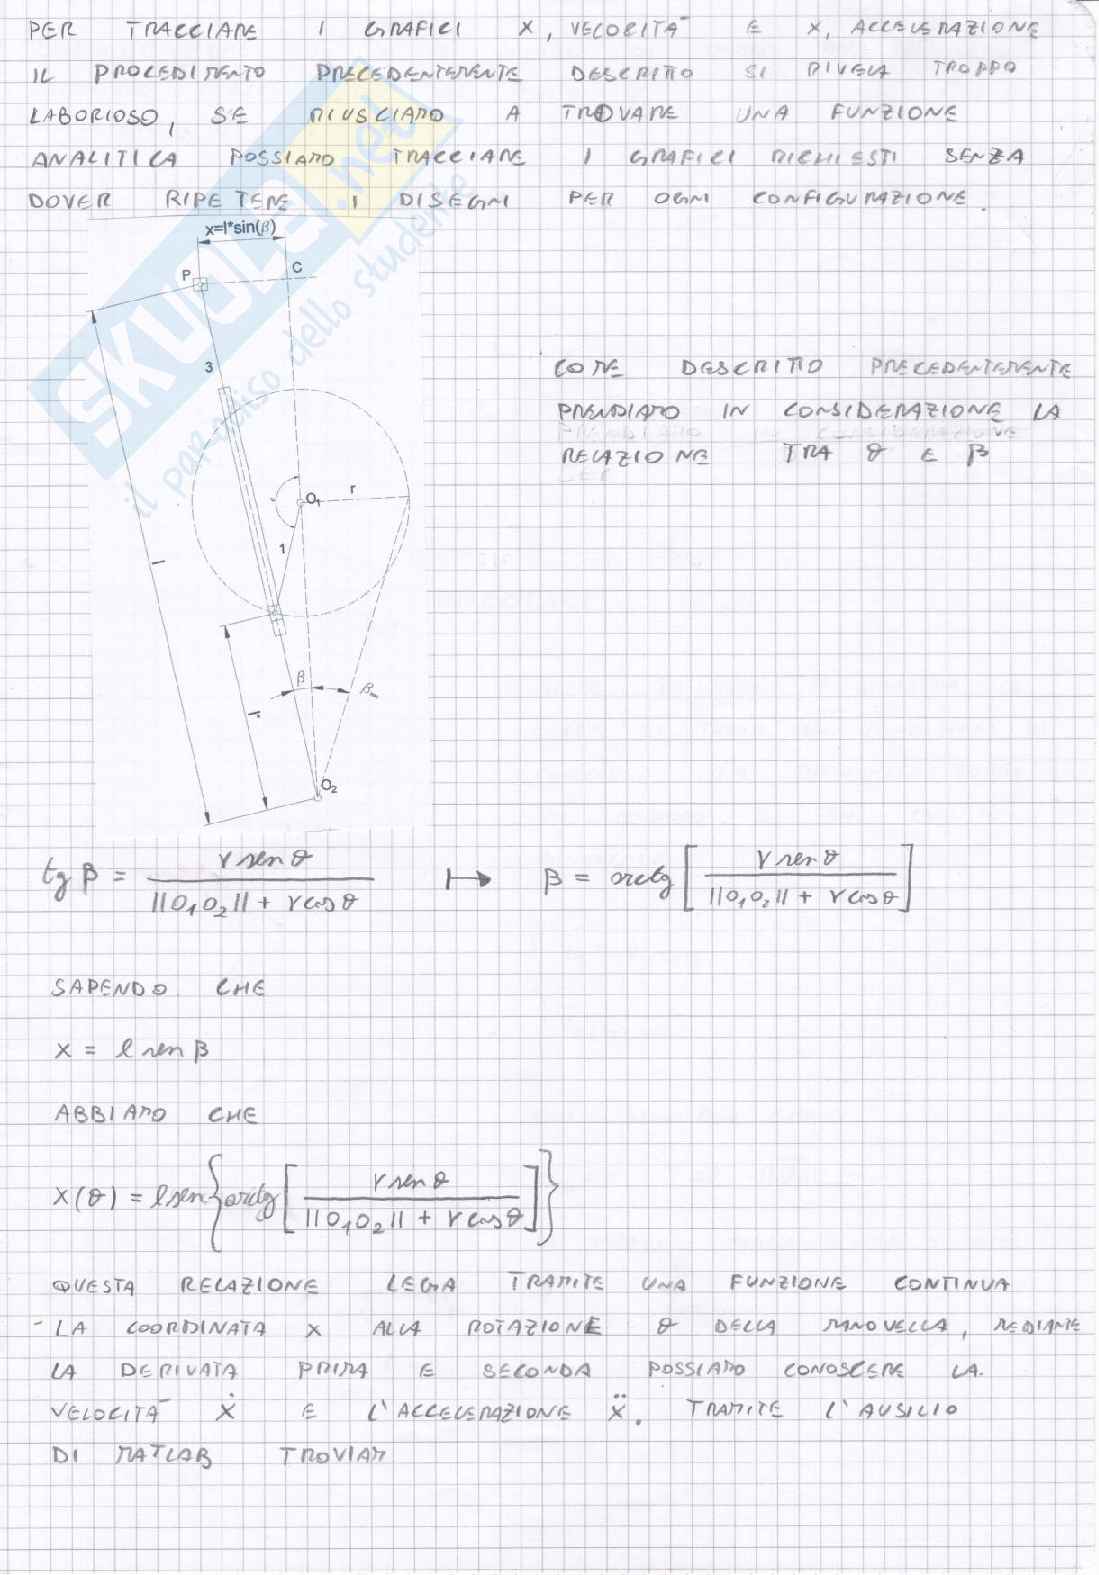 PER TRACCIARE I GRAFICI X, VELOCITA' E X, ACCELERAZIONE
IL PROCEDIMENTO PRECEDENTEMENTE DESCRITTO SI RIVELA TROPPO
LABORIOSO, SE RIUSCIAMO A TROVARE UNA FUNZIONE
ANALITICA POSSIAMO TRACCIARE I GRAFICI RICHIESTI SENZA
DOVER RIPETERE I DISEGNI PER OGNI CONFIGURAZIONE.
SKUOLA.net
il paradiso dello studente
x=l*sin(β)
P
C
3
COME DESCRITTO PRECEDENTEMENTE
PRENDIAMO IN CONSIDERAZIONE LA
RELAZIONE TRA θ E β
O₁
r
1
l
β
βm
O₂
tg β = r sen θ / (||O₁O₂|| + r cos θ) ↦ β = arctg [ r sen θ / (||O₁O₂|| + r cos θ) ]
SAPENDO CHE
X = l sen β
ABBIAMO CHE
X(θ) = l sen { arctg [ r sen θ / (||O₁O₂|| + r cos θ) ] }
QUESTA RELAZIONE LEGA TRAMITE UNA FUNZIONE CONTINUA
LA COORDINATA X ALLA ROTAZIONE θ DELLA MANOVELLA, MEDIANTE
LA DERIVATA PRIMA E SECONDA POSSIAMO CONOSCERE LA
VELOCITA' ẋ E L'ACCELERAZIONE ẍ. TRAMITE L'AUSILIO
DI MATLAB TROVIAM